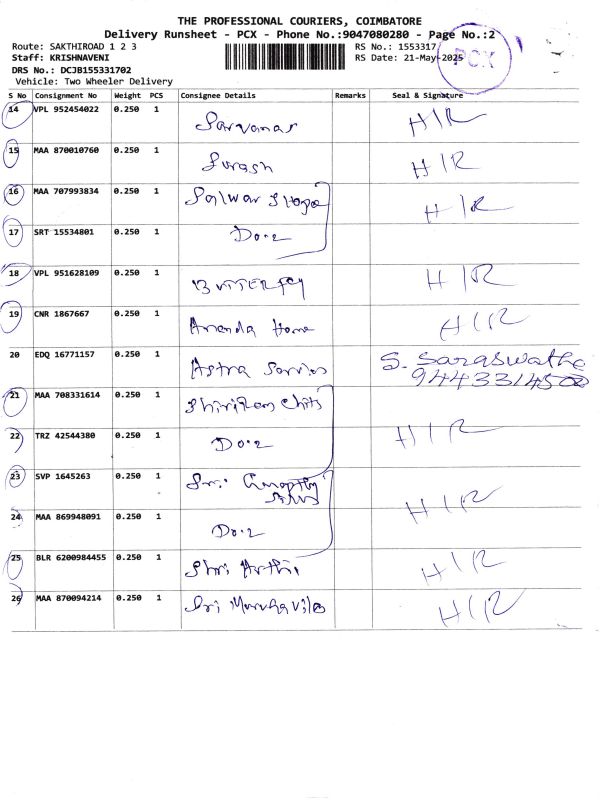 THE PROFESSIONAL COURIERS, COIMBATORE
Delivery Runsheet - PCX - Phone No.:9047080280 - Page No.:2
Route: SAKTHIROAD 1 2 3
RS No.: 1553317
PCX
Staff: KRISHNAVENI
RS Date: 21-May-2025
DRS No.: DCJB155331702
Vehicle: Two Wheeler Delivery
S No Consignment No Weight PCS Consignee Details Remarks Seal & Signature
14 VPL 952454022 0.250 1 Sarvanas H/R
15 MAA 870010760 0.250 1 Surash H/R
16 MAA 707993834 0.250 1 Salwar Shope H/R
17 SRT 15534801 0.250 1 Do-2
18 VPL 951628109 0.250 1 BUTTERFLY H/R
19 CNR 1867667 0.250 1 Ananda Home H/R
20 EDQ 16771157 0.250 1 Astra S. Saraswathe
21 MAA 708331614 0.250 1 Shriram Chits
22 TRZ 42544380 0.250 1 Do-2 H/R
23 SVP 1645263 0.250 1 Sri H/R
24 MAA 869948091 0.250 1 Do-2
25 BLR 6200984455 0.250 1 Shri H/R
26 MAA 870094214 0.250 1 Sri H/R